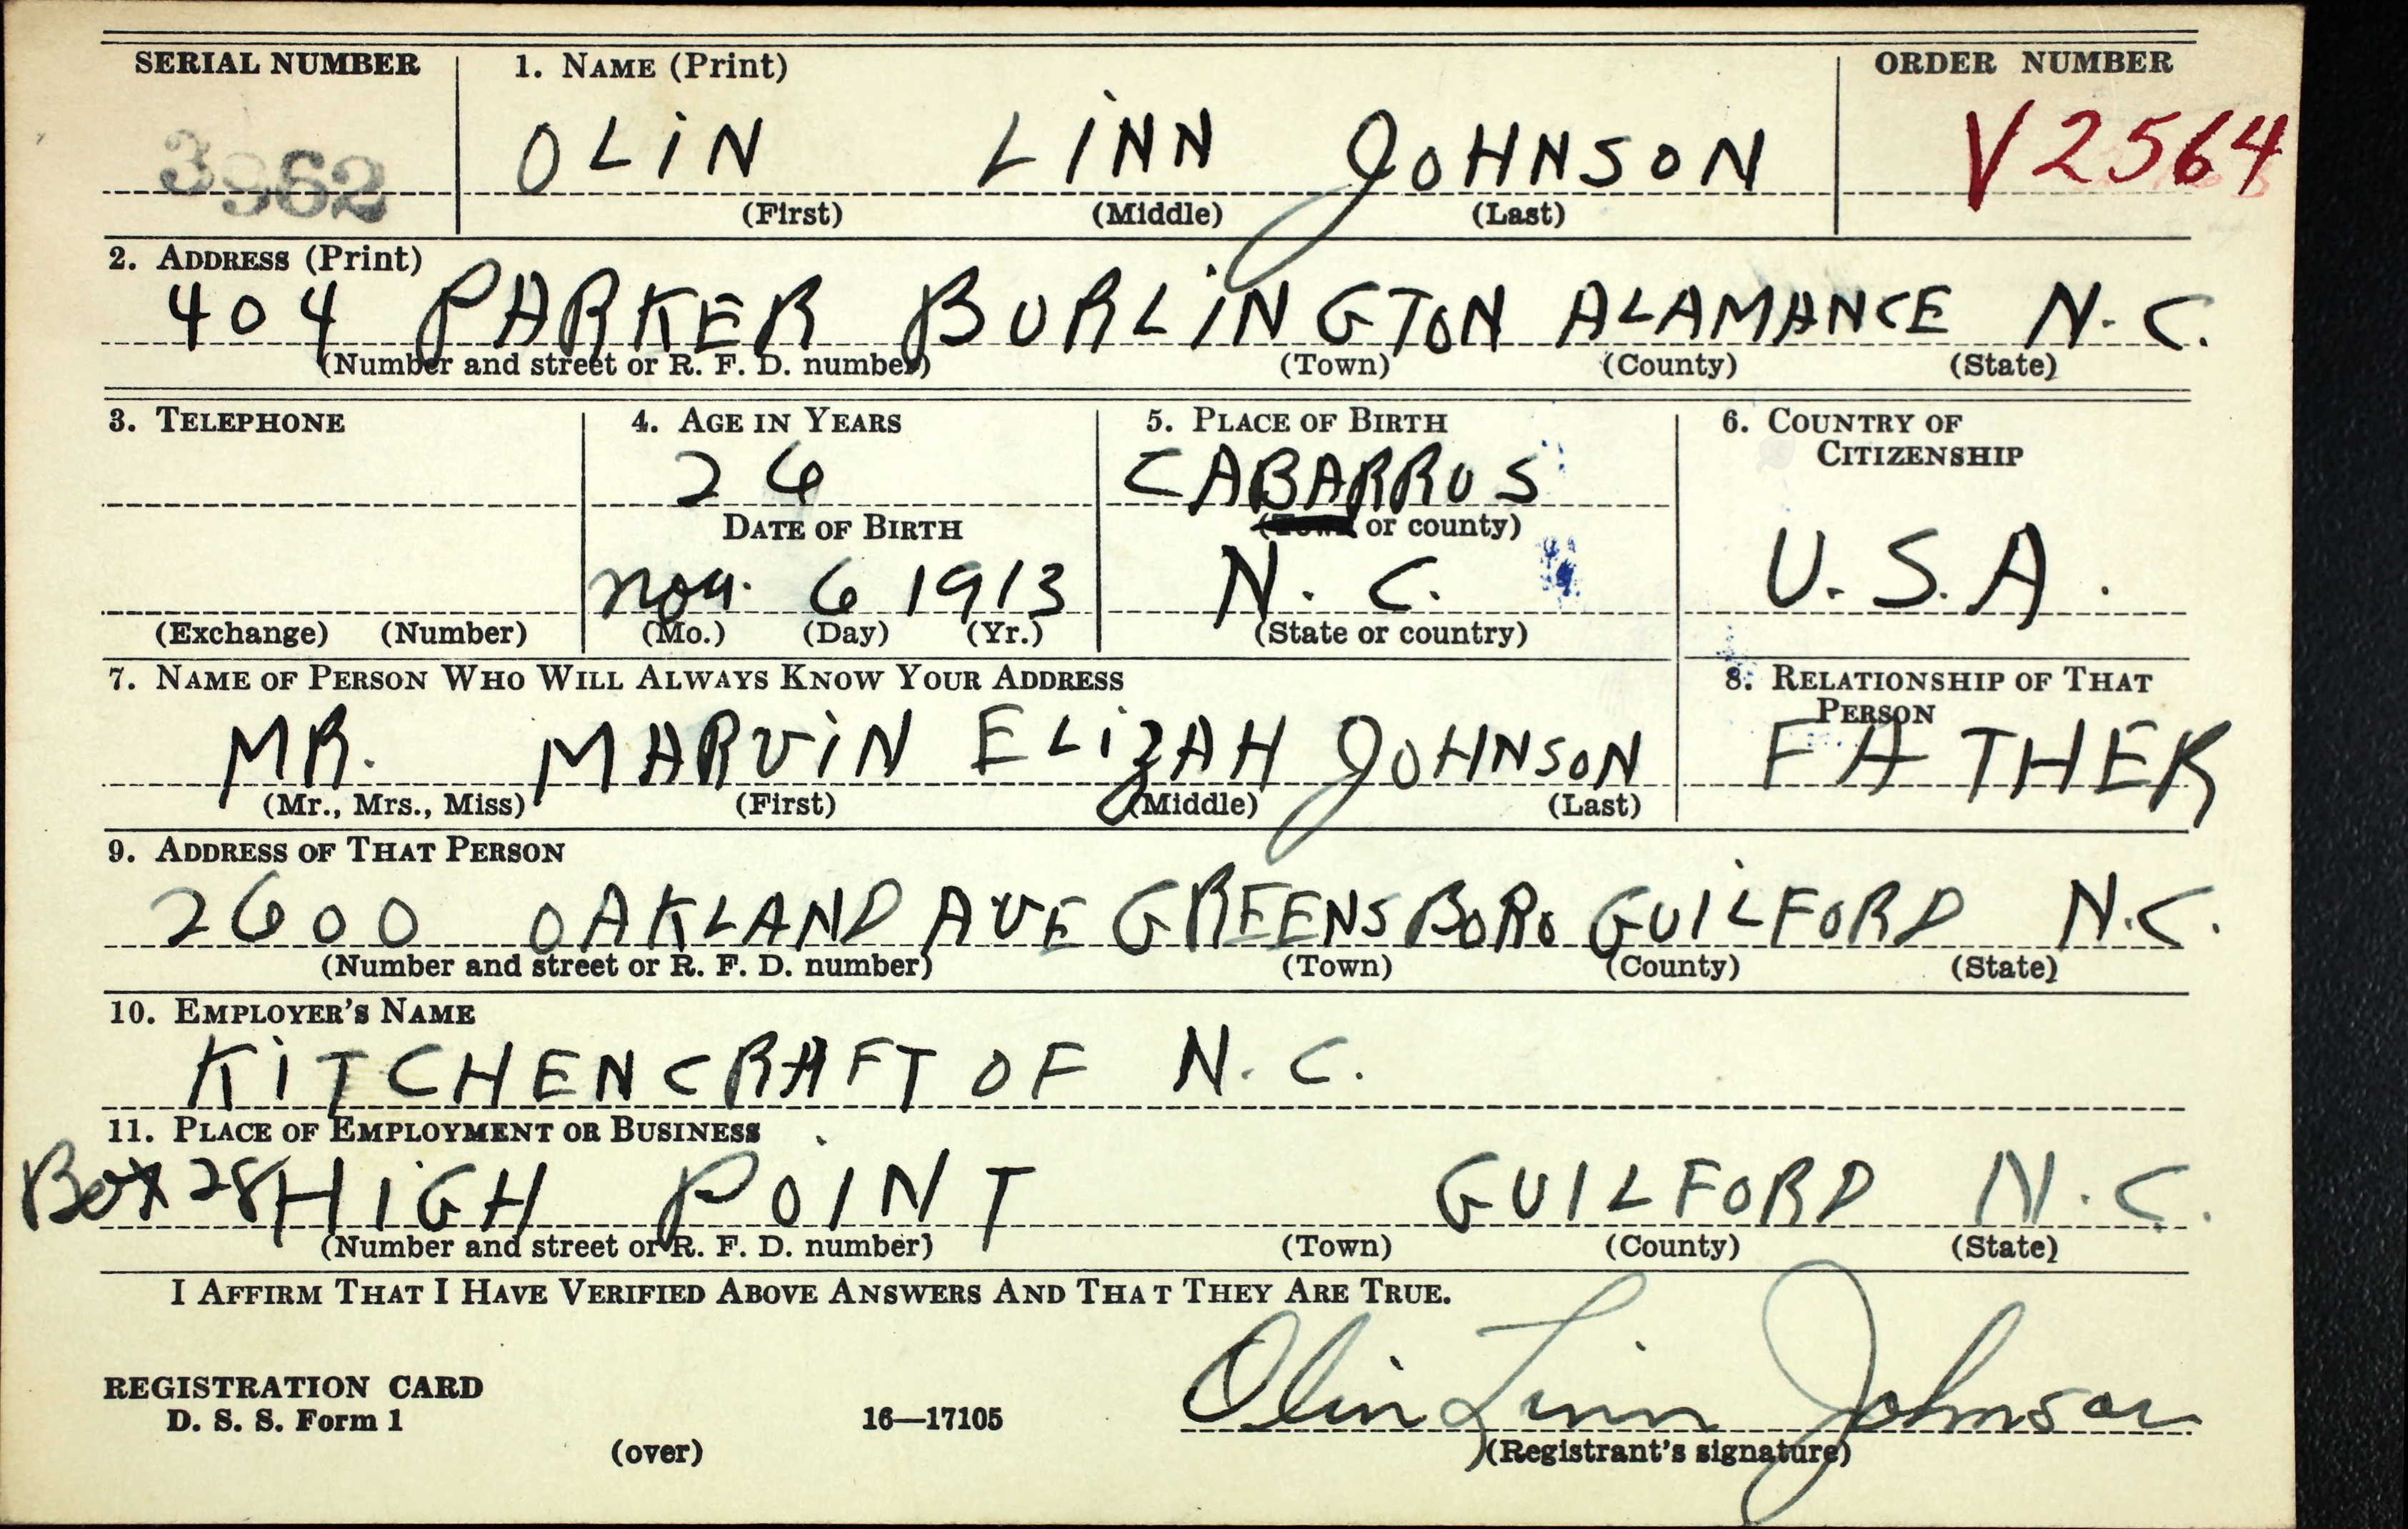 SERIAL NUMBER 1. NAME (Print) ORDER NUMBER
3962 OLIN LINN JOHNSON V2564
(First) (Middle) (Last)
2. ADDRESS (Print)
404 PARKER BURLINGTON ALAMANCE N.C.
(Number and street or R. F. D. number) (Town) (County) (State)
3. TELEPHONE 4. AGE IN YEARS 5. PLACE OF BIRTH 6. COUNTRY OF
CITIZENSHIP
26 CABARRUS
DATE OF BIRTH (Town or county)
Nov. 6 1913 N. C. U.S.A.
(Exchange) (Number) (Mo.) (Day) (Yr.) (State or country)
7. NAME OF PERSON WHO WILL ALWAYS KNOW YOUR ADDRESS 8. RELATIONSHIP OF THAT
PERSON
MR. MARVIN ELIZAH JOHNSON FATHER
(Mr., Mrs., Miss) (First) (Middle) (Last)
9. ADDRESS OF THAT PERSON
2600 OAKLAND AVE GREENSBORO GUILFORD N.C.
(Number and street or R. F. D. number) (Town) (County) (State)
10. EMPLOYER'S NAME
KITCHENCRAFT OF N.C.
11. PLACE OF EMPLOYMENT OR BUSINESS
Box 28 HIGH POINT GUILFORD N.C.
(Number and street or R. F. D. number) (Town) (County) (State)
I AFFIRM THAT I HAVE VERIFIED ABOVE ANSWERS AND THAT THEY ARE TRUE.
Olin Linn Johnson
REGISTRATION CARD
D. S. S. Form 1 16—17105
(over) (Registrant's signature)